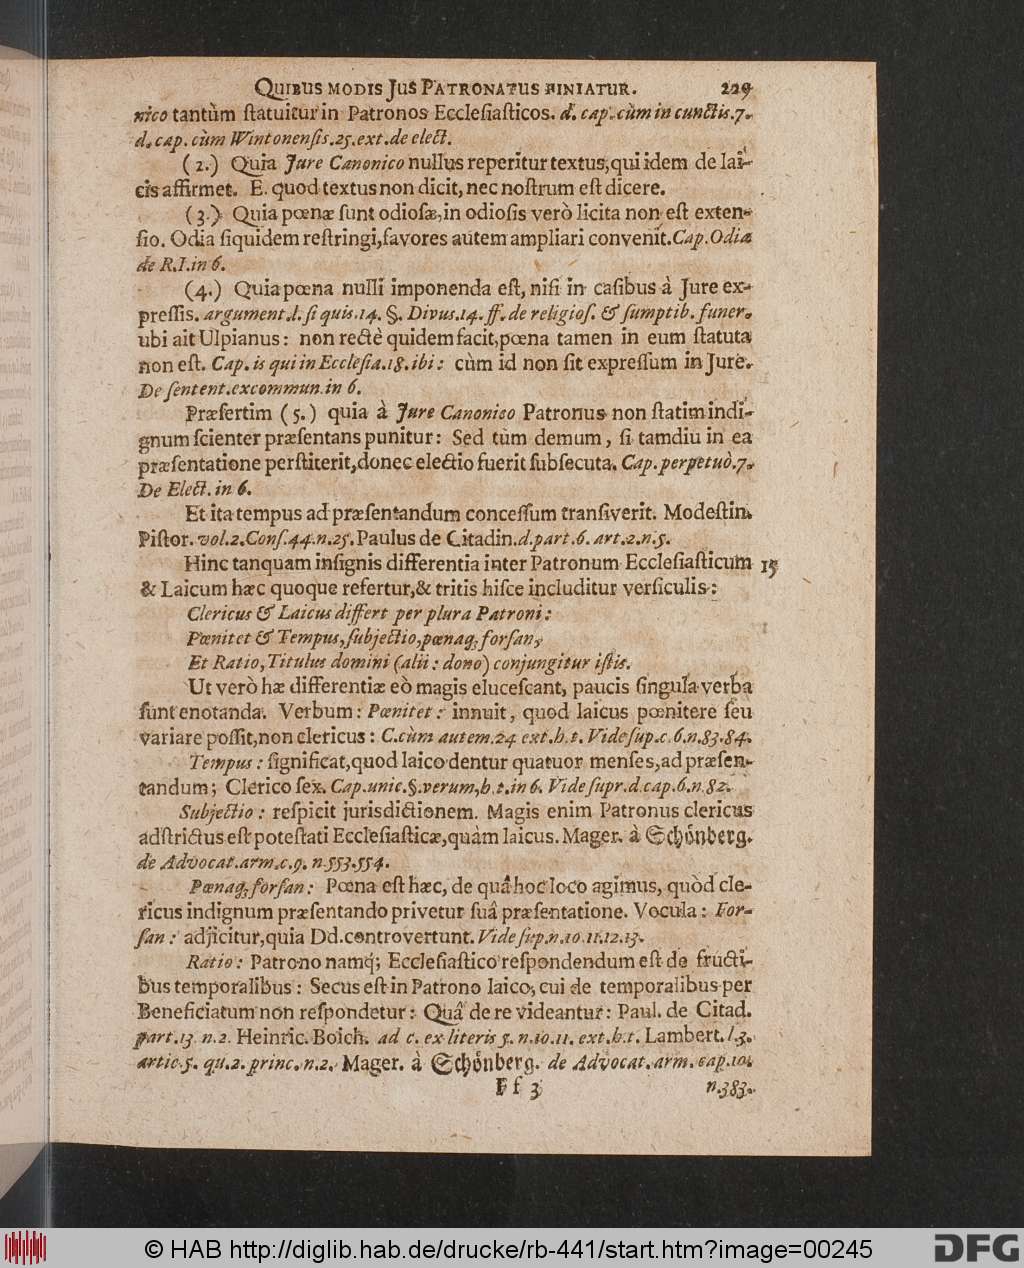 QUIBUS MODIS JUS PATRONATUS FINIATUR. 229
nico tantùm ſtatuitur in Patronos Eccleſiaſticos. d. cap. cùm in cunctis. 7.
d. cap. cùm Wintonenſis. 25. ext. de elect.
(2.) Quia Jure Canonico nullus reperitur textus, qui idem de lai-
cis affirmet. E. quod textus non dicit, nec noſtrum eſt dicere.
(3.) Quia pœnæ ſunt odioſæ, in odioſis verò licita non eſt exten-
ſio. Odia ſiquidem reſtringi, favores autem ampliari convenit. Cap. Odia
de R. I. in 6.
(4.) Quia pœna nulli imponenda eſt, niſi in caſibus à Jure ex-
preſſis. argument. l. ſi quis. 14. §. Divus. 14. ff. de religioſ. & ſumptib. funer.
ubi ait Ulpianus: non rectè quidem facit, pœna tamen in eum ſtatuta
non eſt. Cap. is qui in Eccleſia. 18. ibi: cùm id non ſit expreſſum in Jure.
De ſentent. excommun. in 6.
Præſertim (5.) quia à Jure Canonico Patronus non ſtatim indi-
gnum ſcienter præſentans punitur: Sed tùm demum, ſi tamdiu in ea
præſentatione perſtiterit, donec electio fuerit ſubſecuta. Cap. perpetuò. 7.
De Elect. in 6.
Et ita tempus ad præſentandum conceſſum tranſiverit. Modeſtin.
Piſtor. vol. 2. Conſ. 44. n. 25. Paulus de Citadin. d. part. 6. art. 2. n. 5.
Hinc tanquam inſignis differentia inter Patronum Eccleſiaſticum 15
& Laicum hæc quoque refertur, & tritis hiſce includitur verſiculis:
Clericus & Laicus differt per plura Patroni:
Pœnitet & Tempus, ſubjectio, pœnaq; forſan,
Et Ratio, Titulus domini (alii: dono) conjungitur iſtis.
Ut verò hæ differentiæ eò magis eluceſcant, paucis ſingula verba
ſunt enotanda. Verbum: Pœnitet: innuit, quod laicus pœnitere ſeu
variare poſſit, non clericus: C. cùm autem. 24 ext. h. t. Vide ſup. c. 6. n. 83. 84.
Tempus: ſignificat, quod laico dentur quatuor menſes, ad præſen-
tandum; Clerico ſex. Cap. unic. §. verum, h. t. in 6. Vide ſupr. d. cap. 6. n. 82.
Subjectio: reſpicit jurisdictionem. Magis enim Patronus clericus
adſtrictus eſt poteſtati Eccleſiaſticæ, quàm laicus. Mager. à Schönberg.
de Advocat. arm. c. 9. n. 553. 554.
Pœnaq; forſan: Pœna eſt hæc, de quâ hoc loco agimus, quòd cle-
ricus indignum præſentando privetur ſuâ præſentatione. Vocula: For-
ſan: adjicitur, quia Dd. controvertunt. Vide ſup. n. 10. 11. 12. 13.
Ratio: Patrono namq; Eccleſiaſtico reſpondendum eſt de fructi-
bus temporalibus: Secus eſt in Patrono laico, cui de temporalibus per
Beneficiatum non reſpondetur: Quâ de re videantur: Paul. de Citad.
part. 13. n. 2. Heinric. Boich. ad c. ex literis 5. n. 10. 11. ext. h. t. Lambert. l. 3.
artic. 5. qu. 2. princ. n. 2. Mager. à Schönberg. de Advocat. arm. cap. 10.
F f 3 n. 383.
© HAB http://diglib.hab.de/drucke/rb-441/start.htm?image=00245 DFG